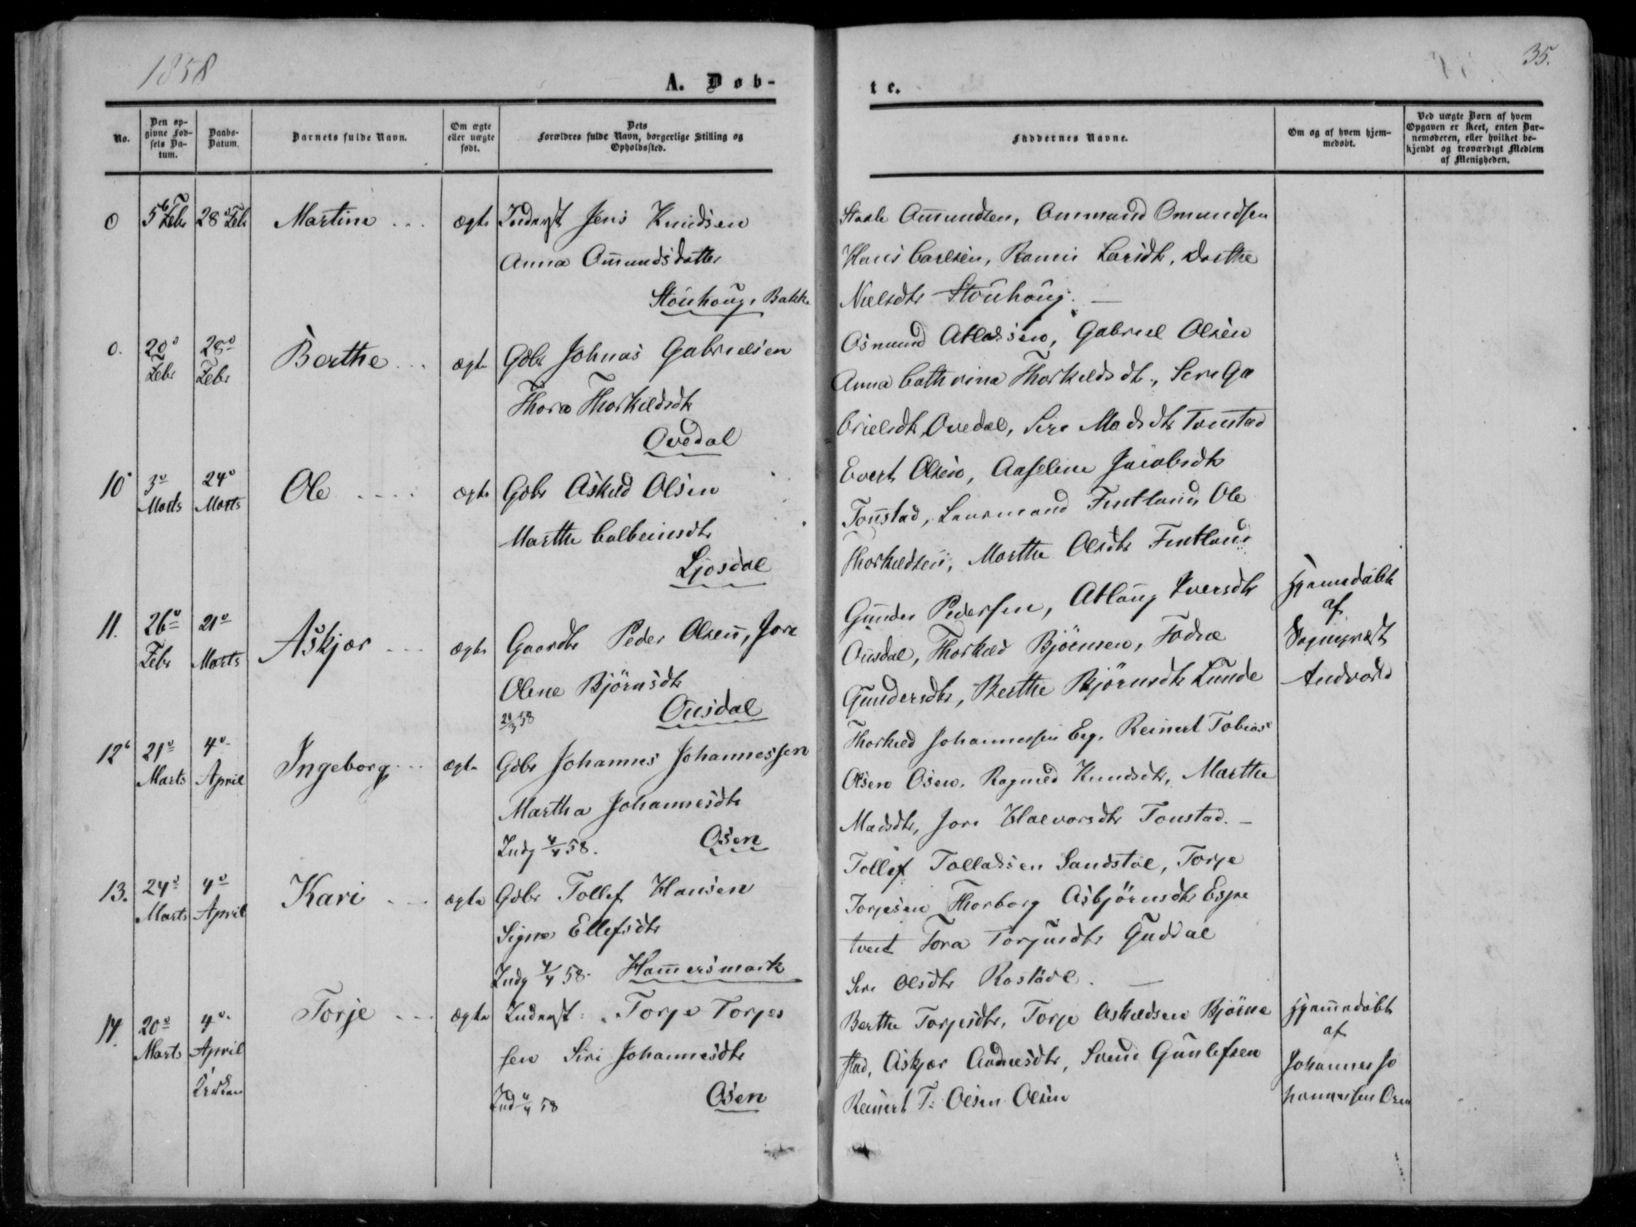 1858
35.
A. Døb-
te.
No.
Den op-
givne Fød-
sels Da-
tum.
Daabs-
Datum.
Barnets fulde Navn.
Om ægte
eller uægte
født.
Dets
Forældres fulde Navn, borgerlige Stilling og
Opholdssted.
Faddernes Navne.
Om og af hvem hjem-
medøbt.
Ved uægte Børn af hvem
Opgaven er skeet, enten Bar-
nemoderen, eller hvilket be-
kjendt og troværdigt Medlem
af Menigheden.
0 5 Febr 28 Febr Martine ægte Inderst Jens Knudsen
Anna Omundsdatter
Stöuhoug, Bakke
Omundsen, Ommund Omundsen
Hans Carlsen, Larsdtr, Dorthe
Nielsdtr Stöuhoug.
0. 20 Febr 28 Febr Berthe ægte Gdbr Johnas Gabrielsen
Thora Thorkildsdtr
Ovedal
Osmund Atlaksen, Gabriel Olsen
Anna Cathrina Thorkildsdtr, Siri Ga
brielsdtr Ovedal, Siri Madsdtr Tonstad
10 3 Marts 24 Marts Ole ægte Gdbr Askild Olsen
Marthe Colbeinsdtr
Ljosdal
Evert Olsen, Aaselene Jacobsdtr
Tonstad, Fintland, Ole
Thorkildsen, Marthe Olsdtr Fintland
11. 26 Febr 21 Marts Askjær ægte Gaardbr Peder Olsen, Jore
Olene Bjørnsdtr
21/3 58 Ousdal
Gunder Pedersen, Atlaug Iversdtr
Ousdal, Thorkild Bjørnsen,
Gundersdtr, Berthe Bjørnsdtr Lunde
Hjemmedøbt
af
Sogneprest
Andvord
12 21 Marts 4 April Ingeborg ægte Gdbr Johannes Johannessen
Martha Johannesdtr
Indg 4/4 58. Osen
Thorkild Johannessen Eeg, Reinert Tobias
Olsen Osen, Ragnild Knudsdtr, Marthe
Madsdtr, Jore Halvorsdtr Tonstad.
13. 24 Marts 4 April Kari ægte Gdbr Tollef Hansen
Signe Ellefsdtr
Indg 4/4 58. Hammersmark
Tollef Tolladsen Sandstøl, Torje
Torjesen Thorborg Asbjörnsdtr Espe
tveit Tora Torjusdtr Guddal
Siri Olsdtr Rostöel.
14. 20 Marts 4 April Kirken Torje ægte Inderst: Torje Torjes
sen Siri Johannesdtr
Ind 4/4 58 Osen
Berthe Torjesdtr, Torje Askildsen Bjørne
stad, Askjær Aadnesdtr, Svend Gunlefsen
Reinert T: Olsen Olsen
Hjemmedøbt
af
Johannes Jo
hannessen Osen